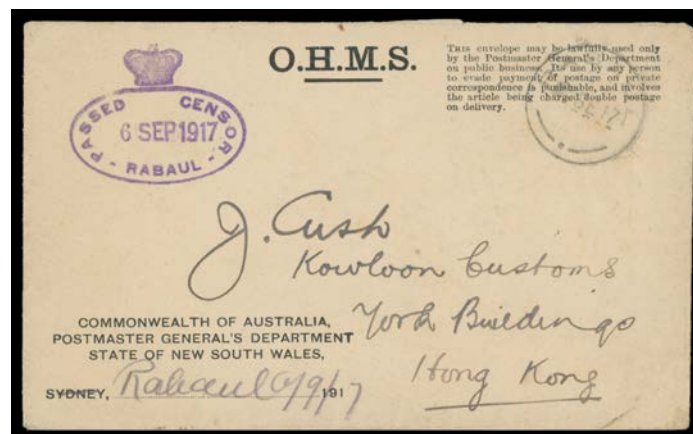 O.H.M.S.
THIS envelope may be lawfully used only
by the Postmaster General's Department
on public business. Its use by any person
to evade payment of postage on private
correspondence is punishable, and involves
the article being charged double postage
on delivery.
PASSED CENSOR
6 SEP 1917
- RABAUL -
J. Cush
Kowloon Customs
York Buildings
Hong Kong
COMMONWEALTH OF AUSTRALIA,
POSTMASTER GENERAL'S DEPARTMENT
STATE OF NEW SOUTH WALES,
SYDNEY, Rabaul 6/9/1917